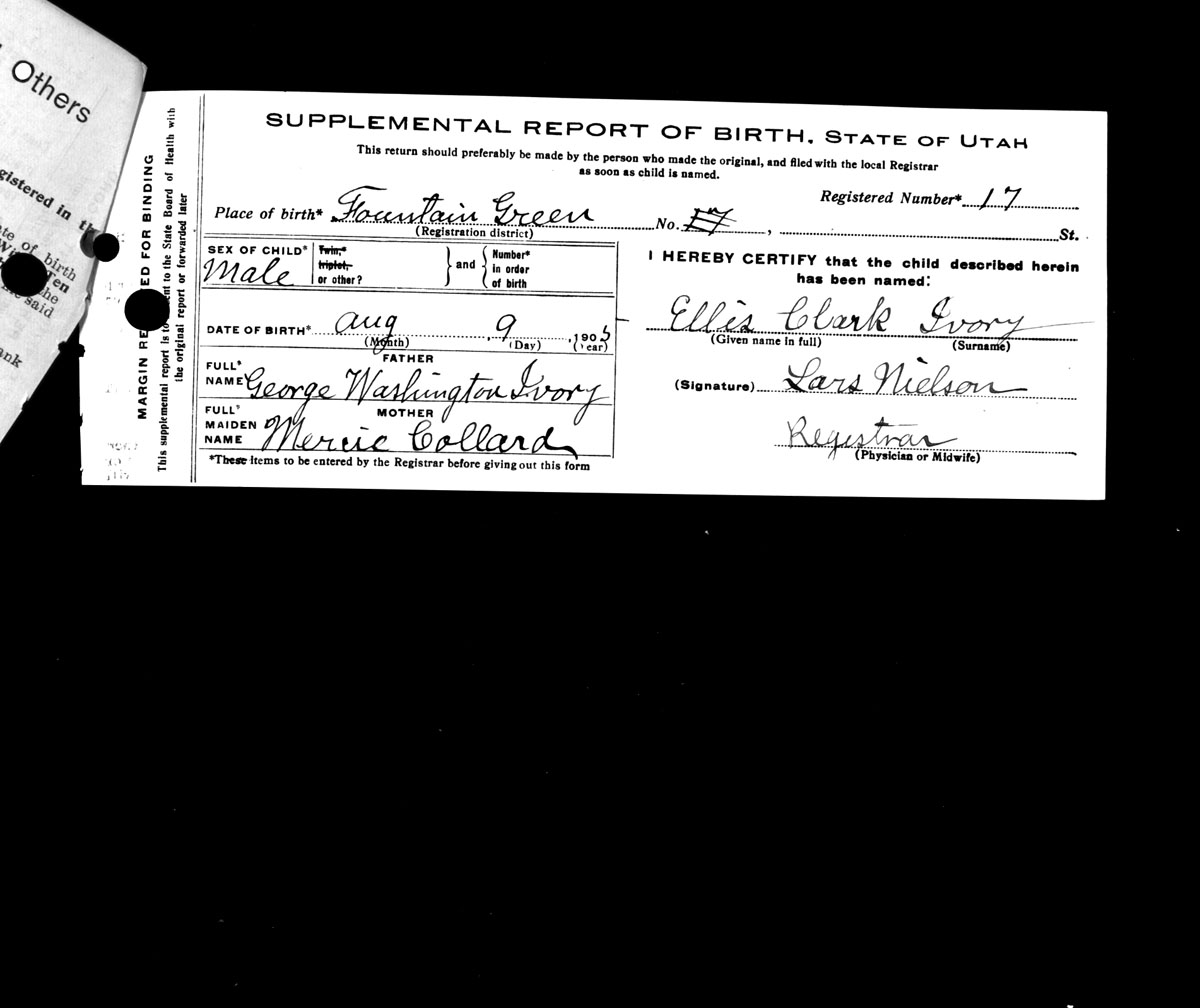 Others
gistered in th
ate of birth
Ten
the
said
ank
MARGIN RE ED FOR BINDING
This supplemental report is to ent to the State Board of Health with
the original report or forwarded later
SUPPLEMENTAL REPORT OF BIRTH, STATE OF UTAH
This return should preferably be made by the person who made the original, and filed with the local Registrar
as soon as child is named.
Registered Number* 17
Place of birth* Fountain Green No. 17, St.
(Registration district)
SEX OF CHILD*
Male
Twin,*
triplet,
or other?
and
Number*
in order
of birth
DATE OF BIRTH* Aug 9, 1905
(Month) (Day) (Year)
FATHER
FULL*
NAME George Washington Ivory
MOTHER
FULL*
MAIDEN
NAME Mercie Collard
*These items to be entered by the Registrar before giving out this form
I HEREBY CERTIFY that the child described herein
has been named:
Ellis Clark Ivory
(Given name in full) (Surname)
(Signature) Lars Nielson
Registrar
(Physician or Midwife)